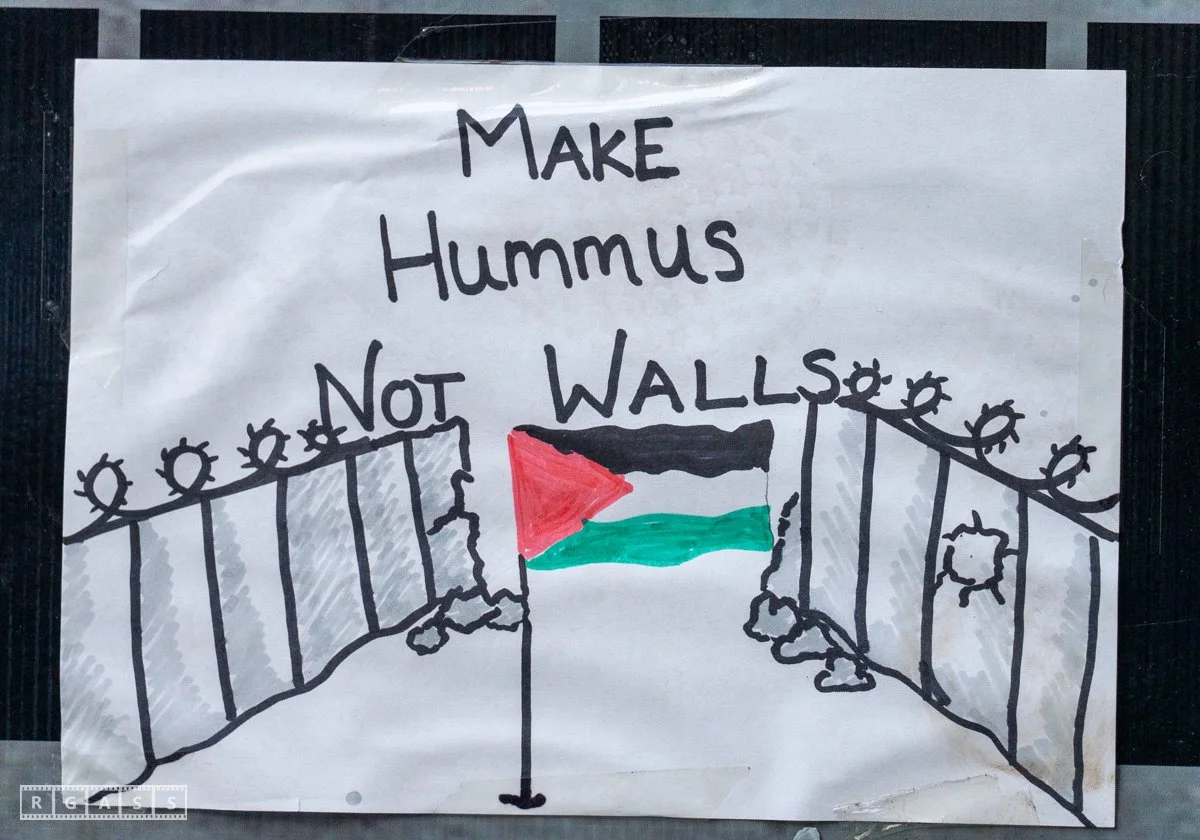 MAKE
HUMMUS
NOT WALLS
RGASS